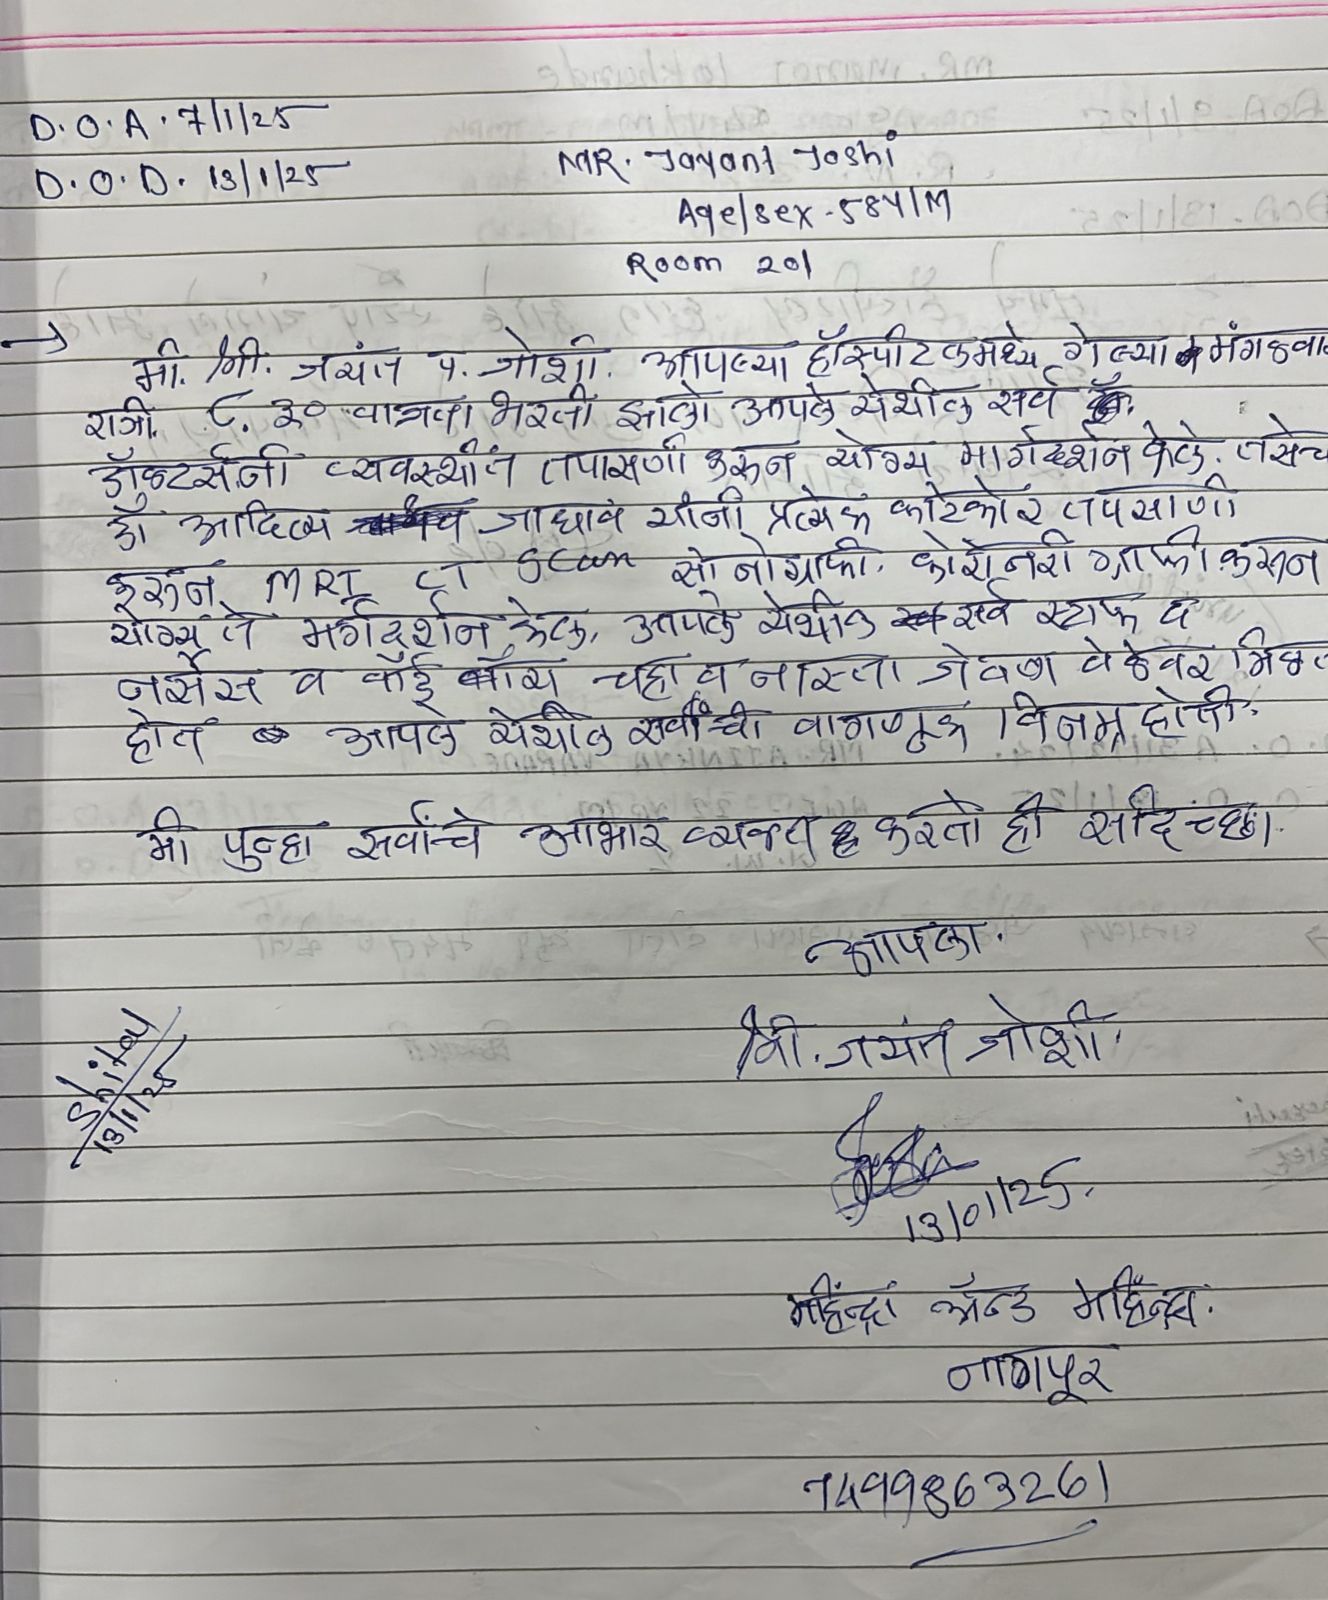 D.O.A. 7/1/25
D.O.D. 13/1/25
MR. Jayant Joshi
Age/sex - 58Y/M
Room 201
→ मी. श्री. जयंत प. जोशी. आपल्या हॉस्पीटलमध्ये गेल्या मंगळवार
रात्री. ८.३० वाजता भरती झालो आपले येथील सर्व
डॉक्टर्सनी व्यवस्थीत तपासणी करून योग्य मार्गदर्शन केले. तसेच
डॉ आदित्य जाधाव यांनी प्रत्येक काटेकोर तपसाणी
करून MRI CT Scan सोनोग्राफी. कोरोनरी ग्राफी करून
योग्य ते मर्गदर्शन केल, आपले येथील सर्व स्टाफ व
नर्सेस व वॉर्ड बॉय चहा व नास्ता जेवण वेळेवर मिळत
होत आपले येथील सर्वांची वागणूक विनम्र होती.
मी पुन्हा सर्वांचे आभार व्यक्त करतो ही सदिच्छा.
आपला.
श्री. जयंत जोशी.
13/01/25.
Shital
13/1/25
महिन्द्रा अॅन्ड महिन्द्रा.
नागपूर
7499863261